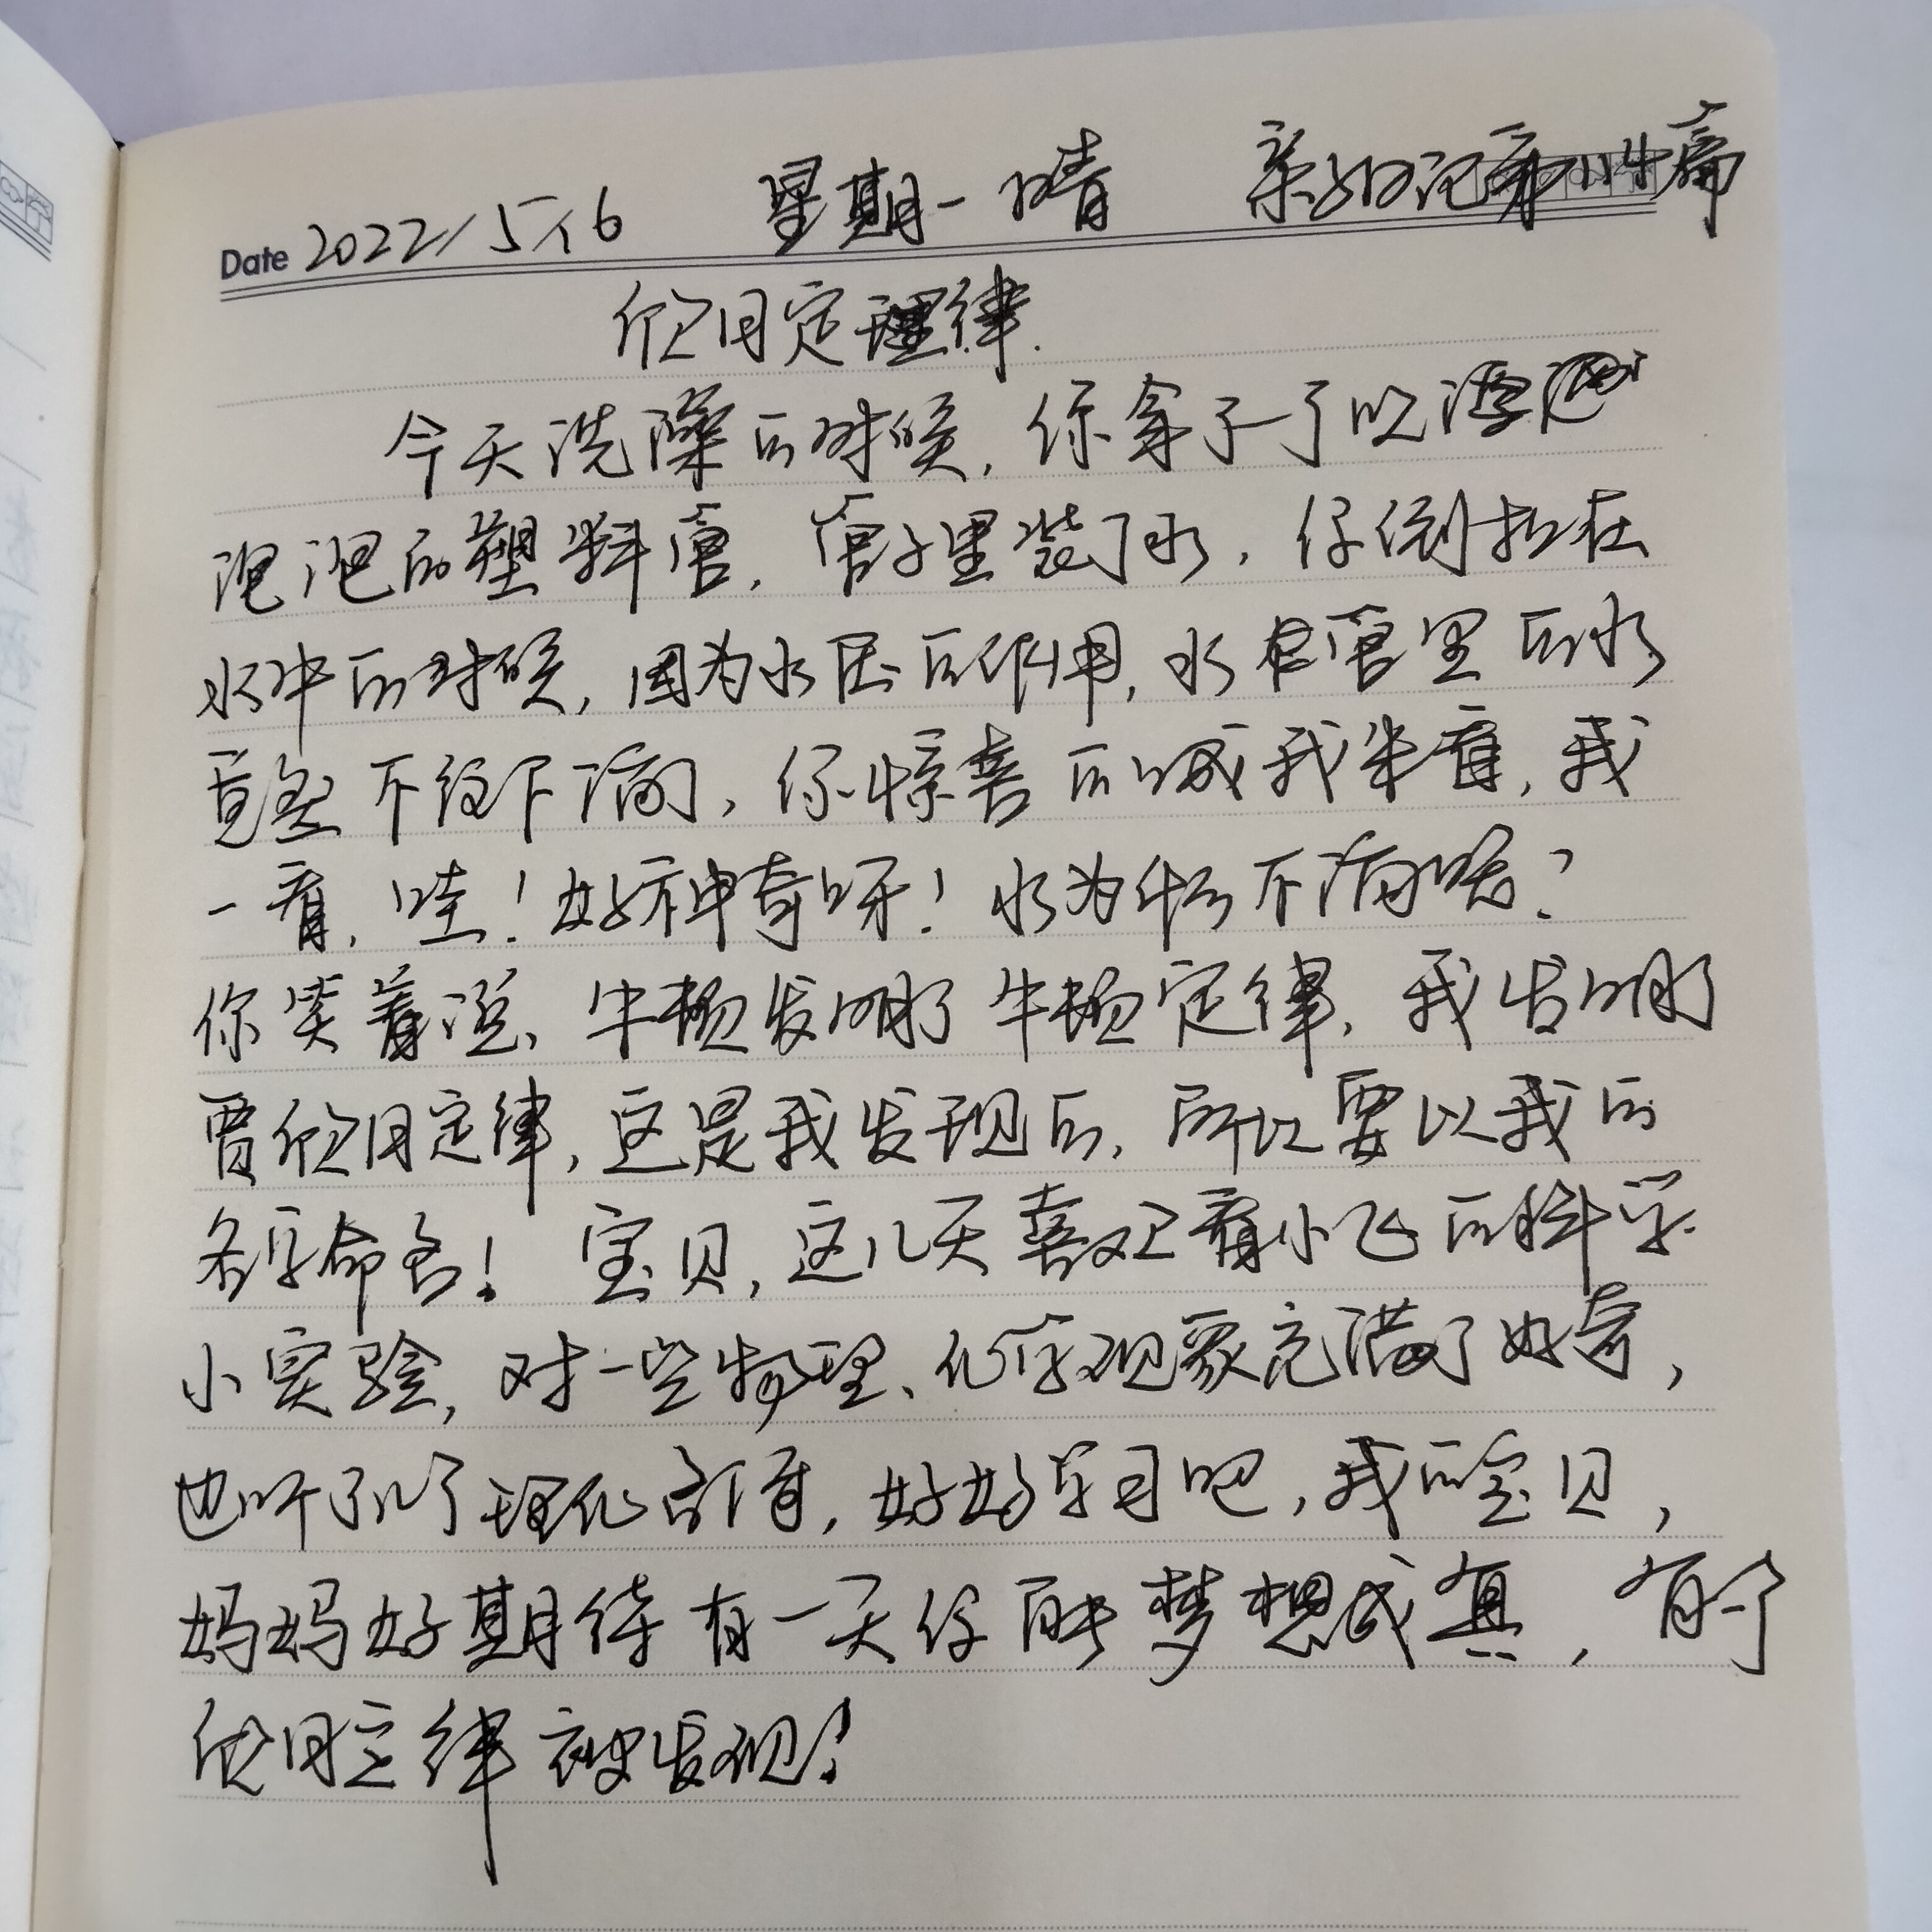 Date 2022/5/16 星期一 晴 亲子日记第114篇
欣月定理律.
今天洗澡的时候,你拿了一个吹
泡泡的塑料管,管子里装了水,你倒扣在
水中的时候,因为水压的作用,水管里的水
竟然不往下滴,你惊喜的喊我来看,我
一看,哇!好神奇呀!水为什么不滴呢?
你笑着说、牛顿发明了牛顿定律,我发明了
贾欣月定律,这是我发现的,所以要以我的
名字命名!宝贝,这几天喜欢看小飞的科学
小实验,对一些物理、化学现象充满了好奇,
也听了几了理化,好好学习吧,我的宝贝,
妈妈好期待有一天你能梦想成真,有个
欣月定律被发现!